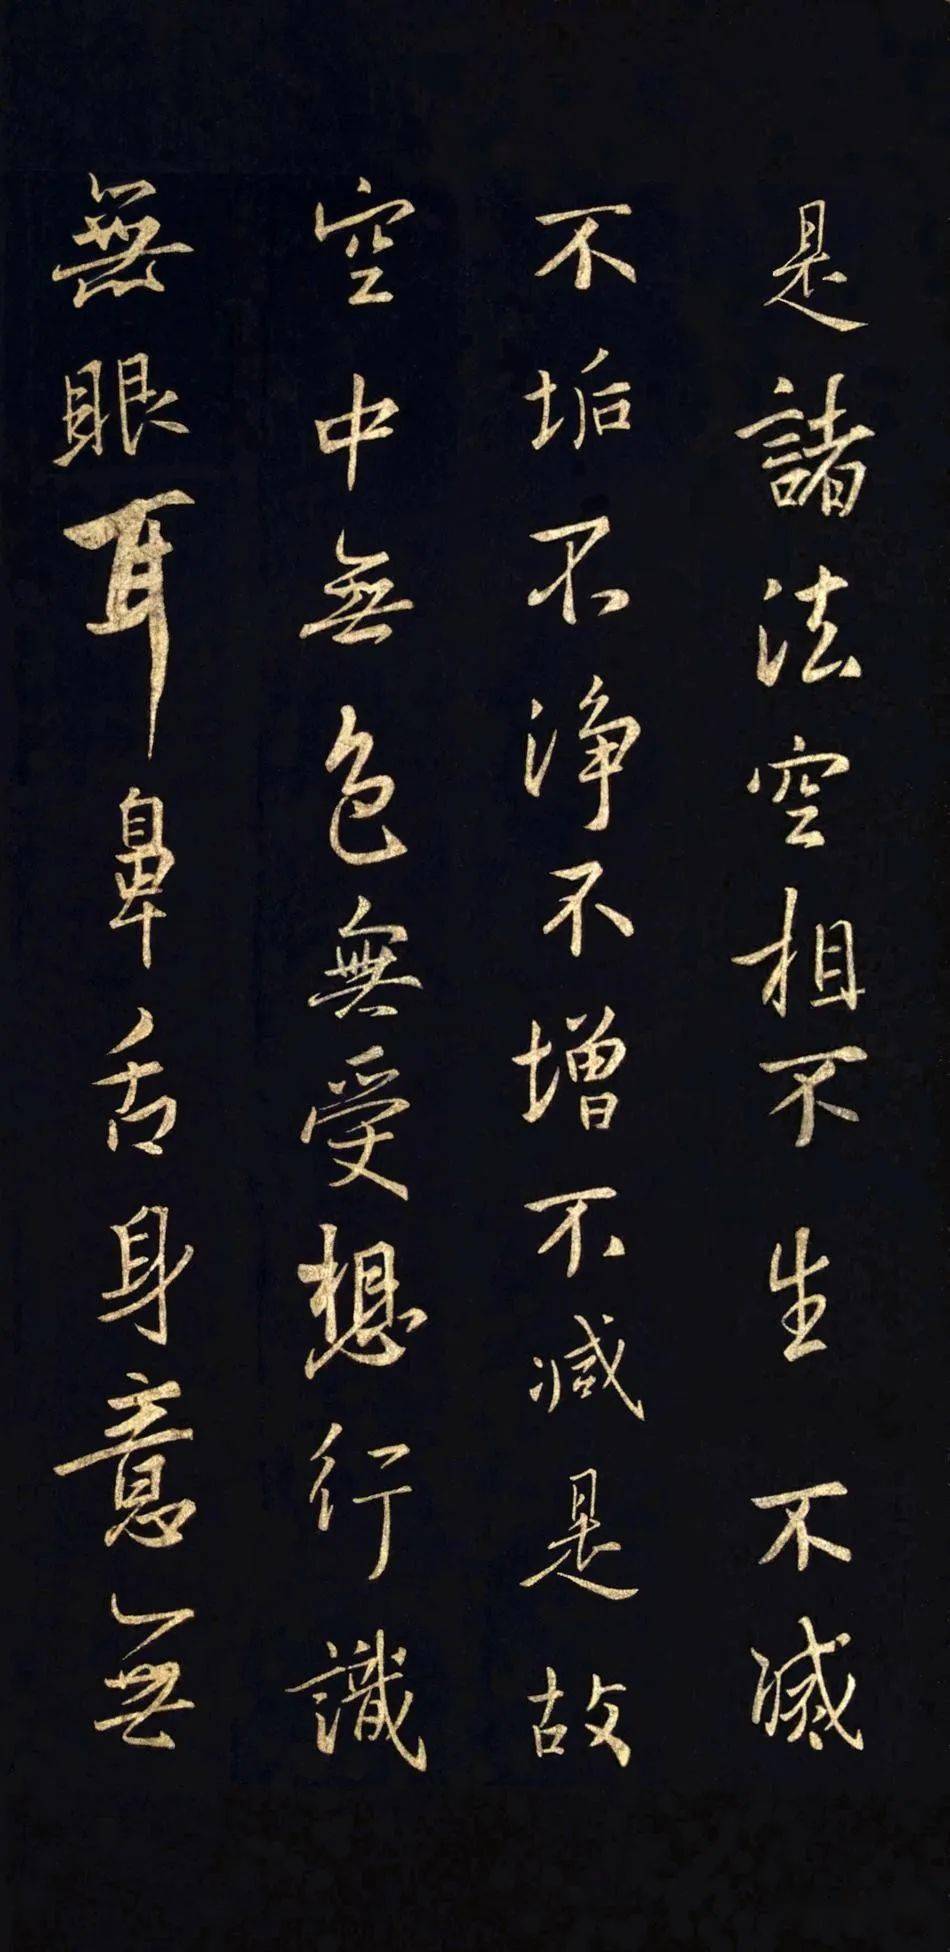 是諸法空相不生不滅
不垢不淨不增不減是故
空中無色無受想行識
無眼耳鼻舌身意無